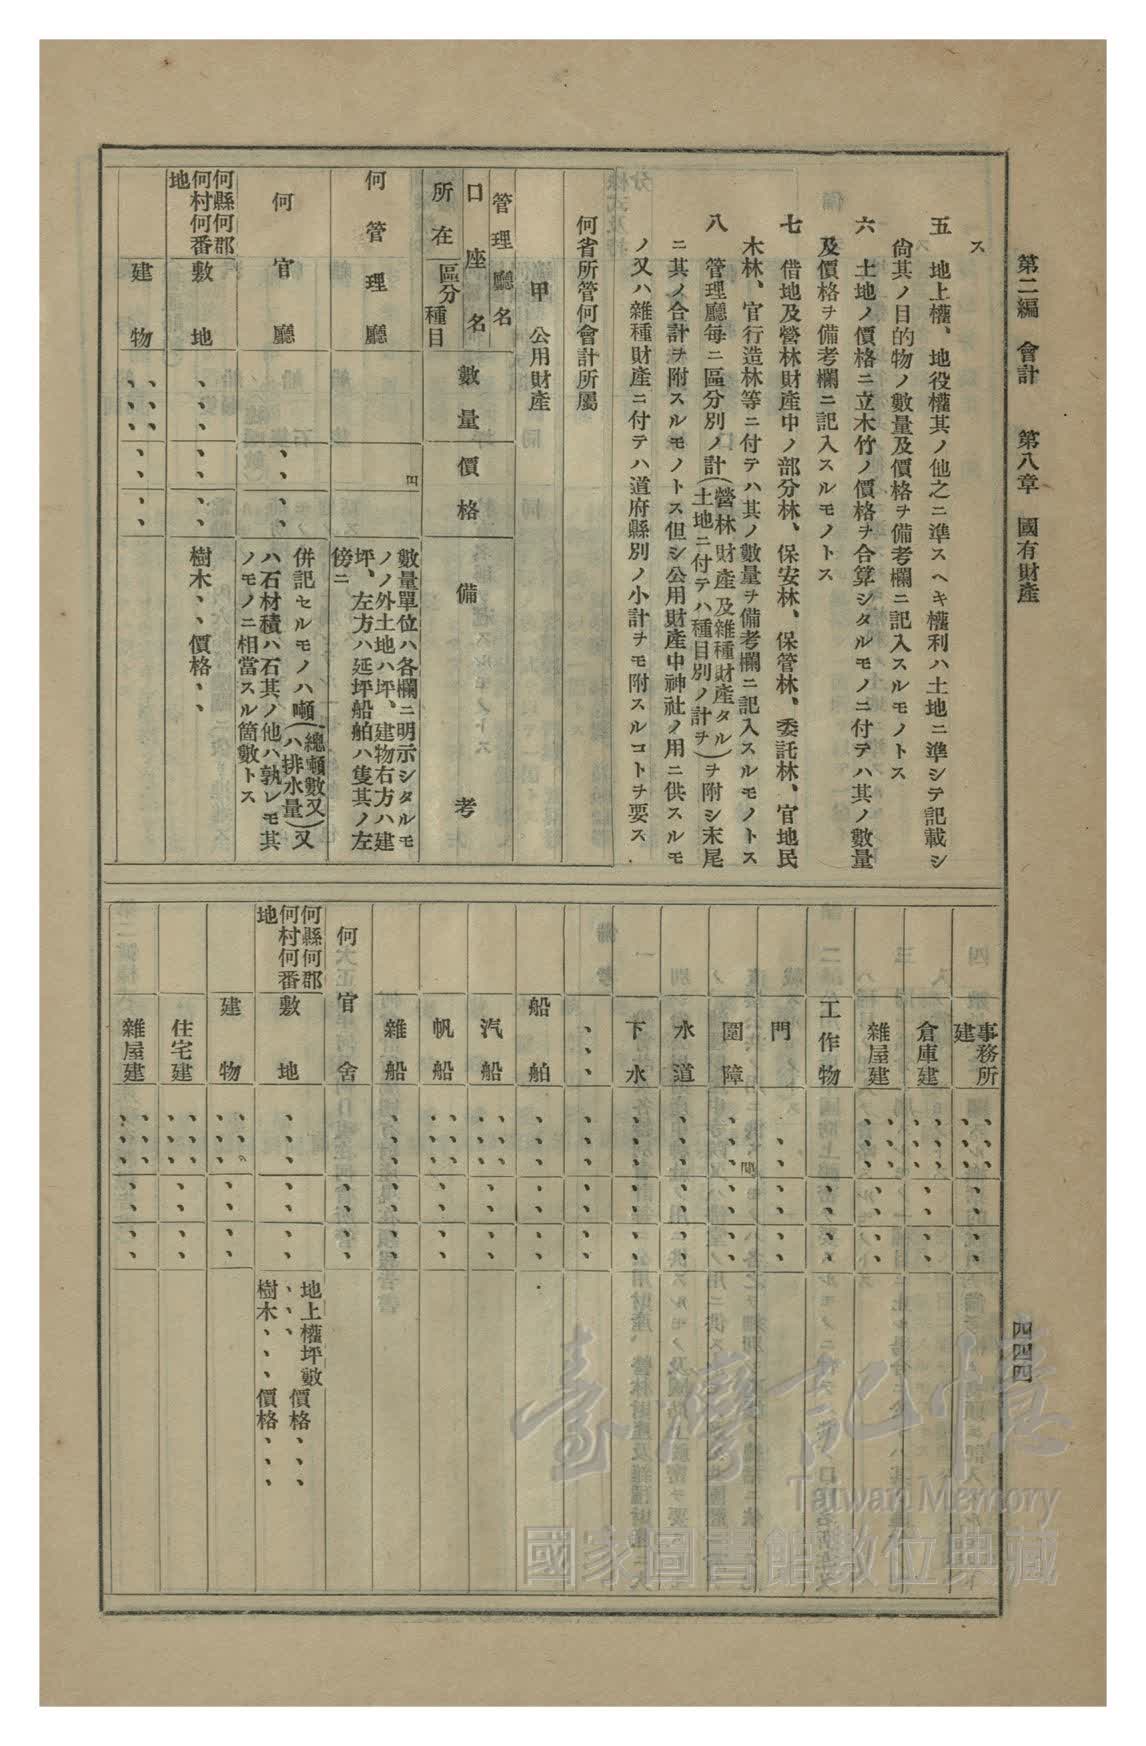 第二編 會計 第八章 國有財產
四四四
ス
五 地上權、地役權其ノ他之ニ準スヘキ權利ハ土地ニ準シテ記載シ
尙其ノ目的物ノ數量及價格ヲ備考欄ニ記入スルモノトス
六 土地ノ價格ニ立木竹ノ價格ヲ合算シタルモノニ付テハ其ノ數量
及價格ヲ備考欄ニ記入スルモノトス
七 借地及營林財產中ノ部分林、保安林、保管林、委託林、官地民
木林、官行造林等ニ付テハ其ノ數量ヲ備考欄ニ記入スルモノトス
八 管理廳每ニ區分別ノ計(營林財產及雜種財產タル土地ニ付テハ種目別ノ計ヲ)ヲ附シ末尾
ニ其ノ合計ヲ附スルモノトス但シ公用財產中神社ノ用ニ供スルモ
ノ又ハ雜種財產ニ付テハ道府縣別ノ小計ヲモ附スルコトヲ要ス
何省所管何會計所屬
甲 公用財產
管理廳名
口座名
所在
區分
種目
數量
價格
備考
何管理廳
四
數量單位ハ各欄ニ明示シタルモ
ノノ外土地ハ坪、建物右方ハ建
坪、左方ハ延坪船舶ハ隻其ノ左
傍ニ
何官廳
、、
、、
併記セルモノハ噸(總噸數又ハ排水量)又
ハ石材積ハ石其ノ他ハ孰レモ其
ノモノニ相當スル箇數トス
何縣何郡
何村何番
地
敷地
、、、
、、
、、
樹木、、價格、、
建物
、、、
、、、
、、
、、
事務所
建
、、、
、、、
、、
、、
倉庫建
、、、
、、、
、、
、、
雜屋建
、、、
、、、
、、
、、
工作物
、、
、、
門
、、
、、
、、
圍障
、、、間
、、
、、
水道
、、、
、、
、、
下水
、、、
、、
、、
、、、
、、、
、、
、、
船舶
、、、
、、
、、
汽船
、、、
、、、
、、
、、
帆船
、、、
、、、
、、
、、
雜船
、、、
、、
、、
何官舍
、、
、、
何縣何郡
何村何番
地
敷地
、、、
、、
、、
地上權坪數
、、、價格、、、
樹木、、、價格、、、
建物
、、、
、、、
、、
、、
住宅建
、、、
、、、
、、
、、
雜屋建
、、、
、、、
、、
、、
臺灣記憶
Taiwan Memory
國家圖書館數位典藏